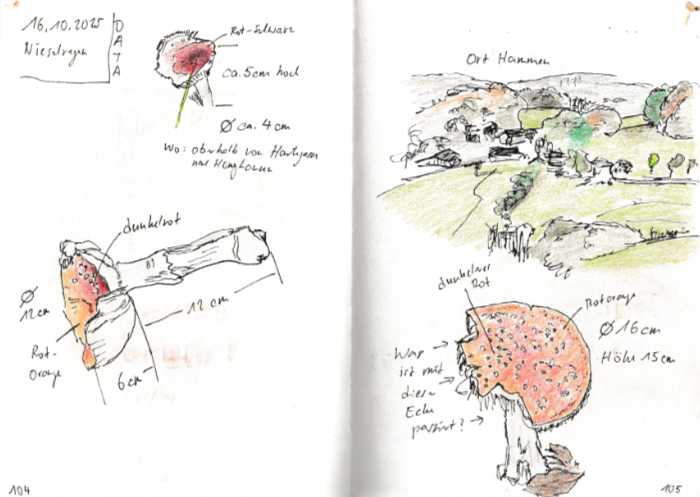 16.10.2025
Nieselregen
DATA
Rot-Schwarz
ca. 5cm hoch
Ø ca. 4 cm
Wo: oberhalb von
und
dunkelrot
Ø
12cm
12 cm
Rot-
Orange
6cm
104
Ort Hammen
dunkelner
Rot
Rotorange
Ø 16cm
Höhe 15cm
Was
ist mit
dieser
Ecke
passiert?
105